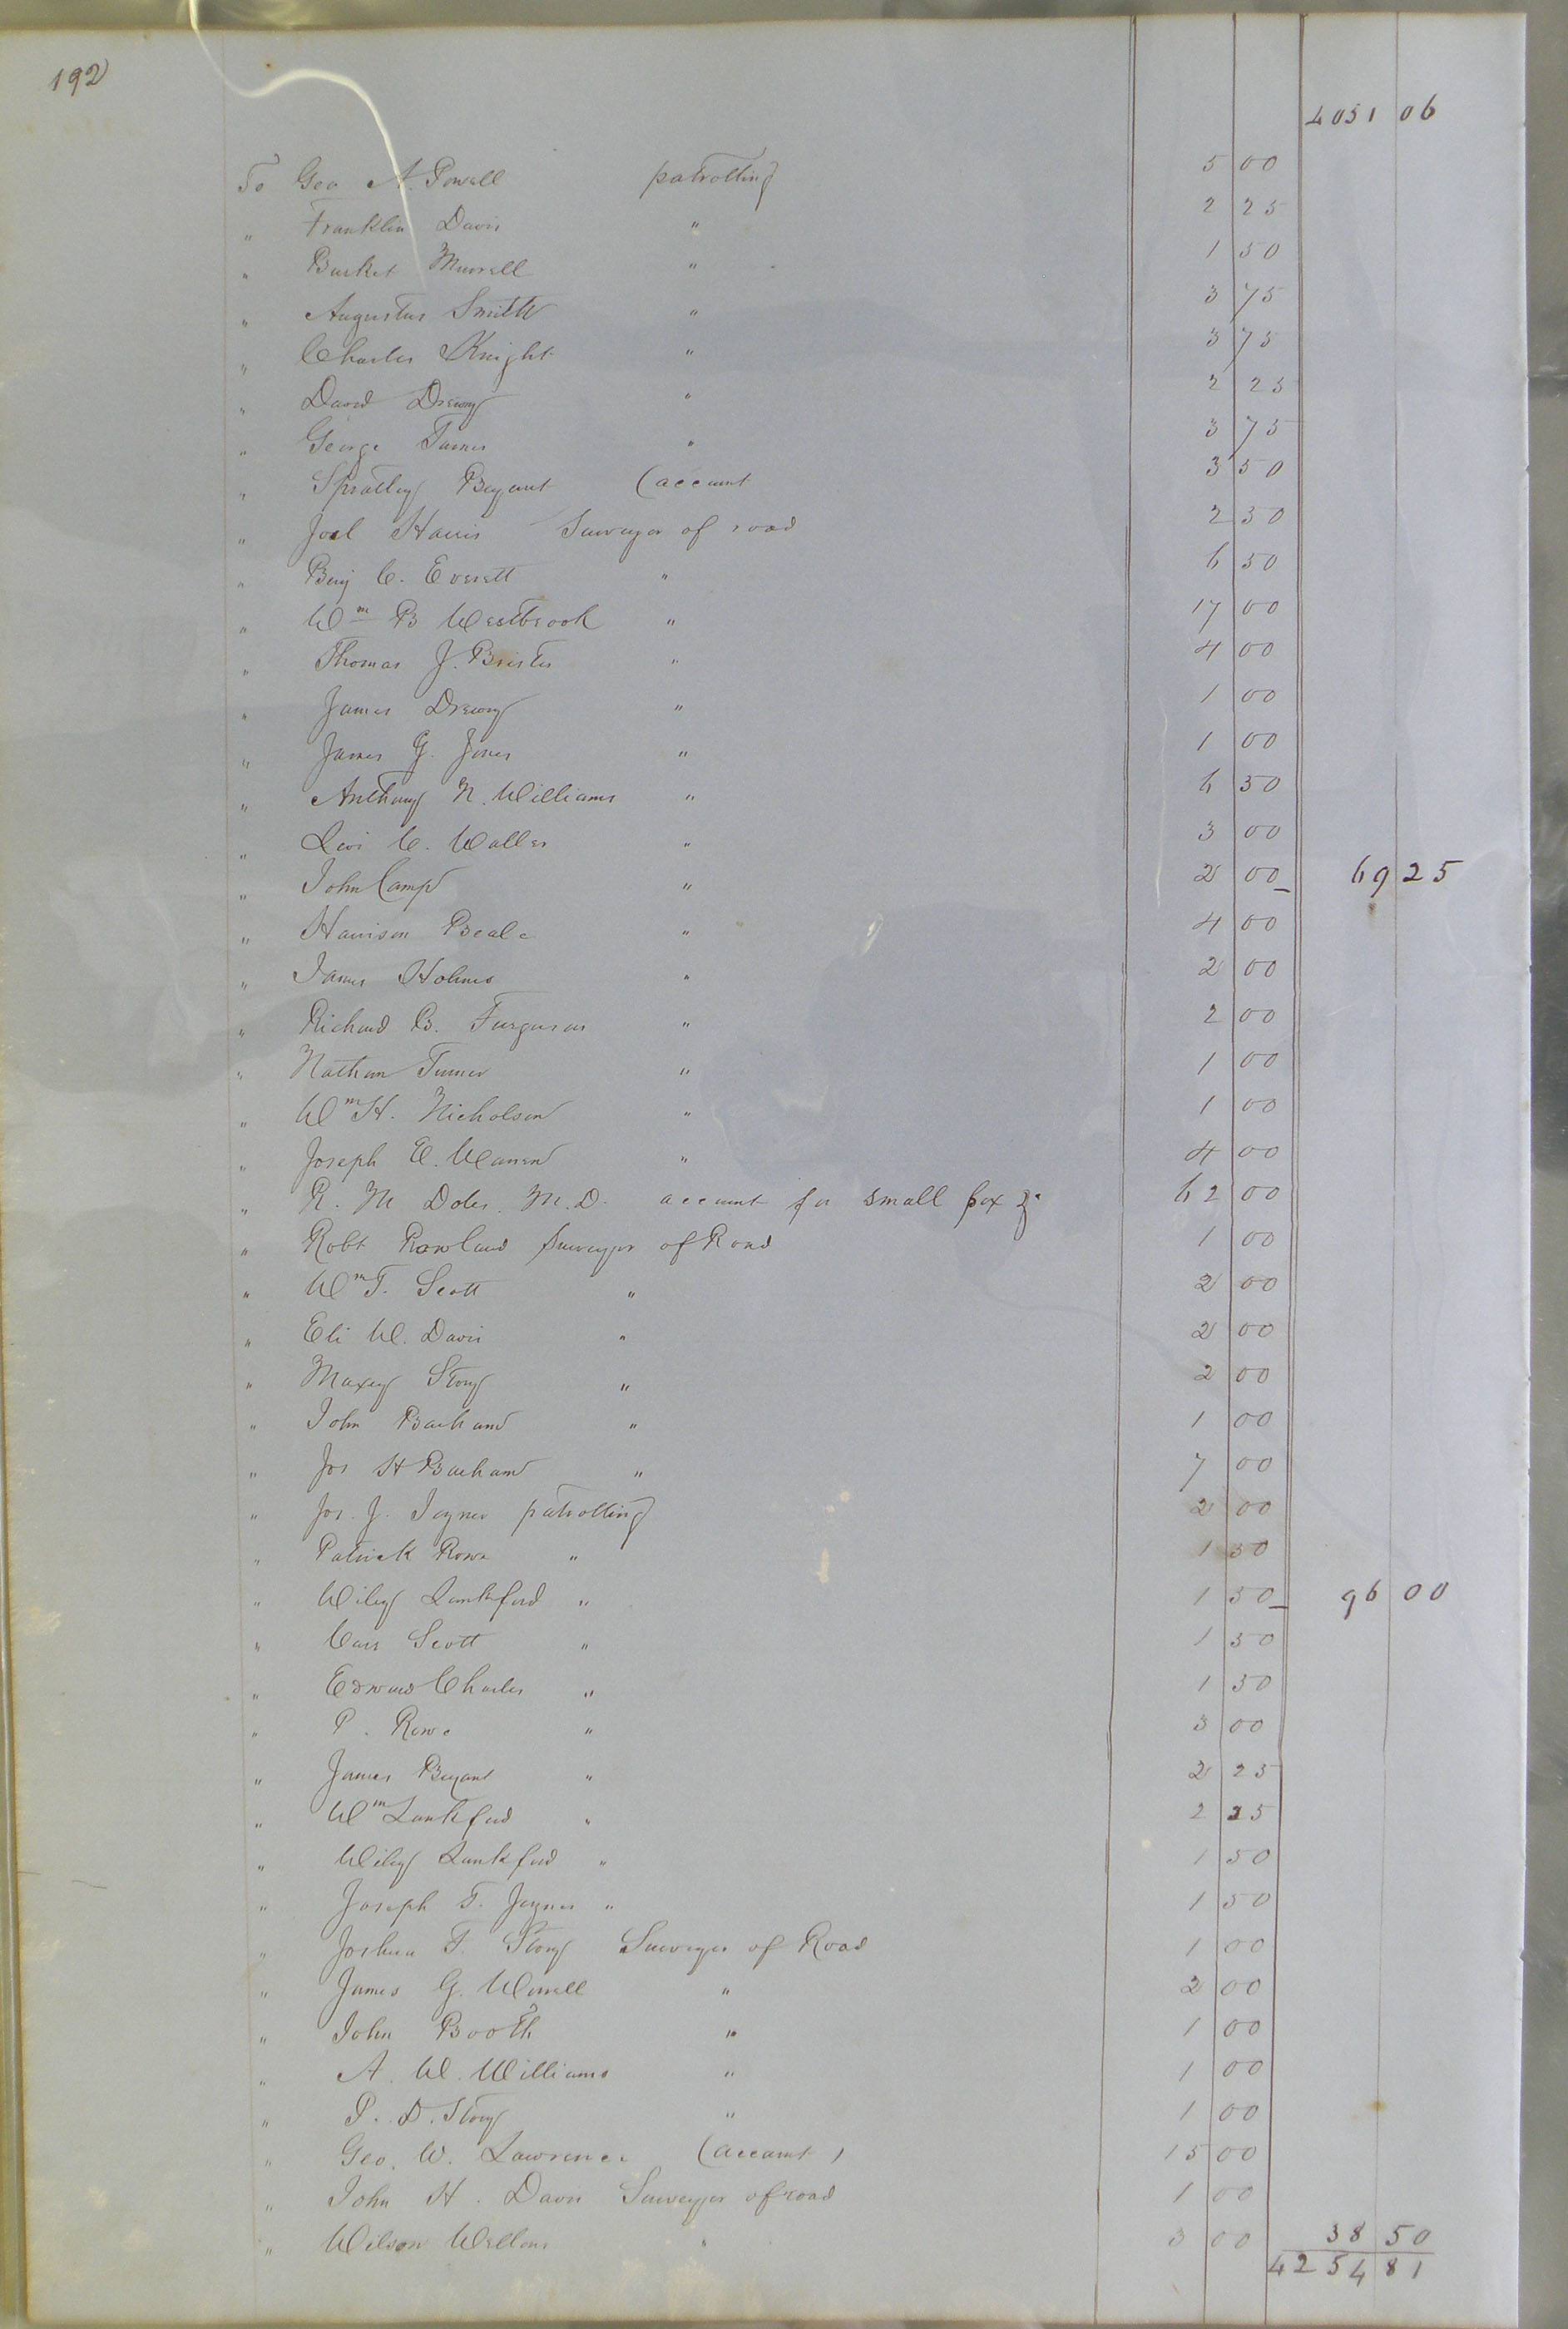 192
4051 06
To Geo A. Powell patrolling 5 00
" Franklin Davis " 2 25
" Burket Murrell " 1 50
" Augustus Smith " 3 75
" Charles Knight " 3 75
" David Drewry " 2 25
" George Turner " 3 75
" Spratley Bryant (account 3 50
" Joel Harris Surveyor of road 2 50
" Benj C. Everett " 6 50
" Wm B Westbrook " 17 00
" Thomas J. Brister " 4 00
" James Drewry " 1 00
" James G. Jones " 1 00
" Anthony N. Williams " 6 50
" Levi C. Waller " 3 00
" John Camp " 2 00 69 25
" Harrison Beale " 4 00
" James Holmes " 2 00
" Richard B. Furguson " 2 00
" Nathan Turner " 1 00
" Wm H. Nicholson " 1 00
" Joseph E. Warren " 4 00
" R. M Doles. M.D. account for small pox &c 62 00
" Robt Rowland Surveyor of Road 1 00
" Wm T. Scott " 2 00
" Eli W. Davis " 2 00
" Maxey Story " 2 00
" John Barham " 1 00
" Jos H Barham " 7 00
" Jos. J. Joyner patrolling 2 00
" Patrick Rowe " 1 50
" Wiley Lankford " 1 50 96 00
" Scott " 1 50
" Edward Charles " 1 50
" P. Rowe " 3 00
" James Bryant " 2 25
" Wm Lankford " 2 25
" Wiley Lankford " 1 50
" Joseph T. Joyner " 1 50
" Joshua T. Story Surveyor of Road 1 00
" James G. Worrell " 2 00
" John Booth " 1 00
" A. W. Williams " 1 00
" P. D. Story " 1 00
" Geo. W. Lawrence (account) 15 00
" John H. Davis Surveyor of road 1 00
" Wilson Wellons " 3 00 38 50
4254 81